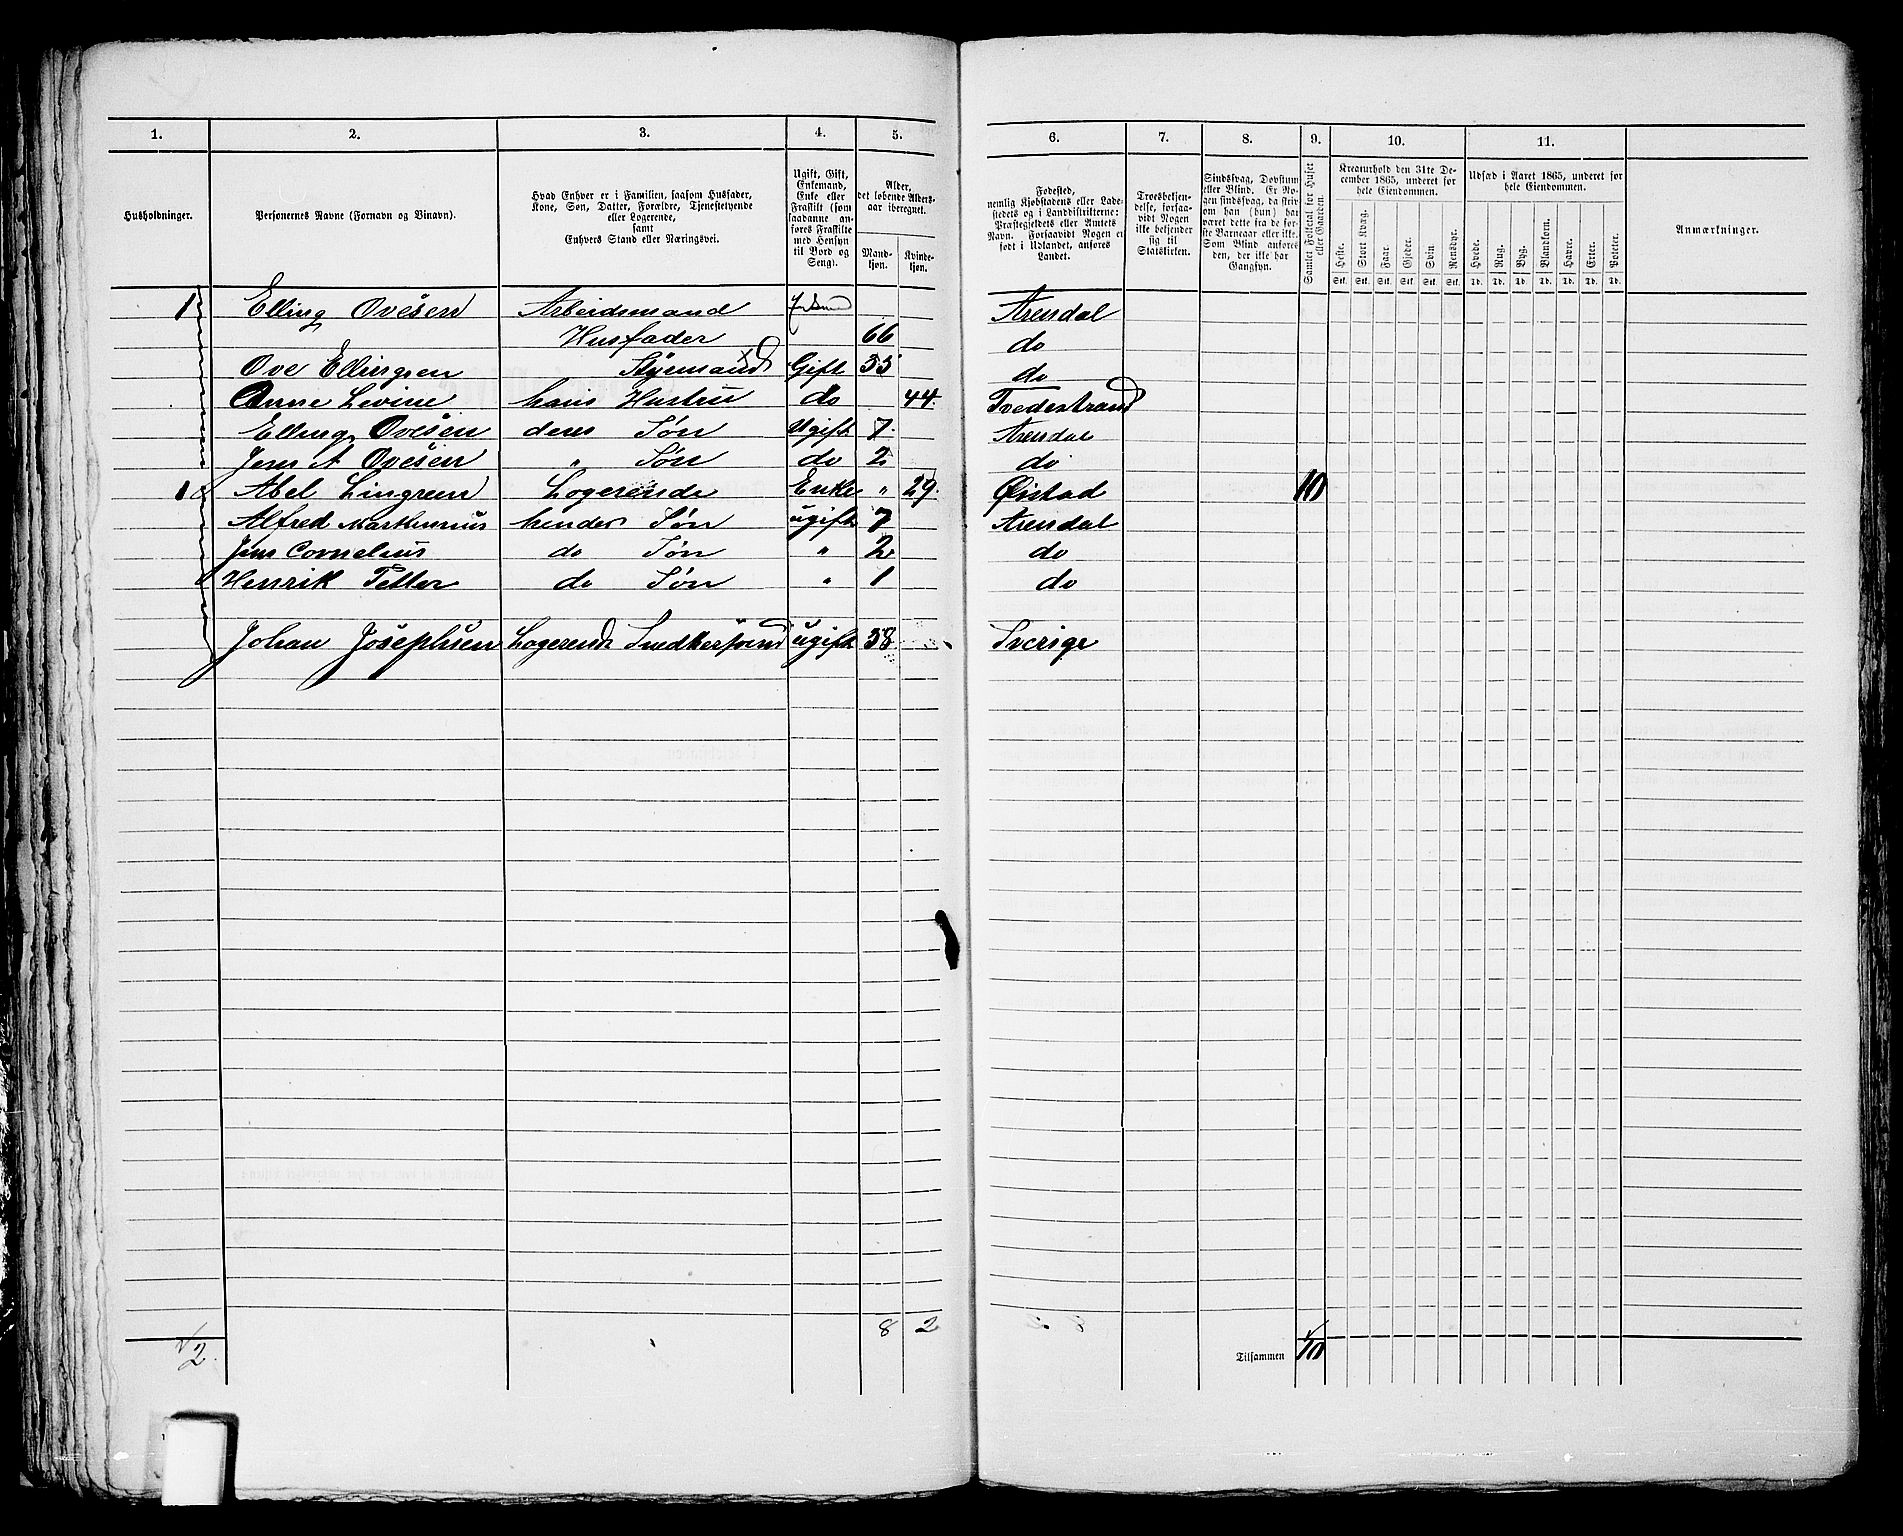 1. 2. 3. 4. 5. 6. 7. 8. 9. 10. 11.
Husholdninger.
Personernes Navne (Fornavn og Vinavn).
Hvad Enhver er i Familien, saasom Husfader,
Kone, Søn, Datter, Forældre, Tjenestetyende
eller Logerende,
samt
Enhvers Stand eller Næringsvei.
Ugift, Gift,
Enkemand,
Enke eller
Fraskilt (som
saadanne an-
føres Fraskilte
med Hensyn
til Bord og
Seng).
Alder,
det løbende Alders-
aar iberegnet.
Mand-
kjøn.
Kvinde-
kjøn.
Fødested,
nemlig Kjøbstadens eller Lade-
stedets og i Landdistrikterne:
Præstegjeldets eller Amtets
Navn. Forsaavidt Nogen er
født i Udlandet, anføres
Landet.
Troesbekjen-
delse, forsaa-
vidt Nogen
ikke bekjender
sig til
Statskirken.
Sindssvag, Døvstum
eller Blind. Er No-
gen sindssvag, da skriv
om han (hun) har
været dette fra de før-
ste Barneaar eller ikke.
Som Blind anføres
den, der ikke har
Gangsyn.
Samlet Folketal for Huset
eller Gaarden.
Kreaturhold den 31te De-
cember 1865, underet for
hele Eiendommen.
Heste. Stort Kvæg. Faar. Gjeder. Svin Rensdyr.
Stk. Stk. Stk. Stk. Stk. Stk.
Udsæd i Aaret 1865, underet for
hele Eiendommen.
Hvede. Rug. Byg. Blandkorn. Havre. Erter. Poteter.
Td. Td. Td Td. Td. Td. Td.
Anmærkninger.
1 Elling Ovesen Arbeidsmand Arendal
Husfader 66 do
Ove Ellingsen Styrmand Gift 35 do
Anne Levine hans Hustru do 44. Tvedestrand
Elling Ovesen deres Søn Ugift 7. Arendal
Jens A Ovesen " Søn do 2. do
1 Abel Lingreen Logerende Enke " 29. Øiestad 10
Alfred Marthinius hendes Søn ugift 7 Arendal
Jens Cornelius do Søn " 2 do
Henrik Petter do Søn " 1 do
Johan Josephsen Logerende Snedkersvend ugift 38 Sverige
8 2
2.
Tilsammen 10